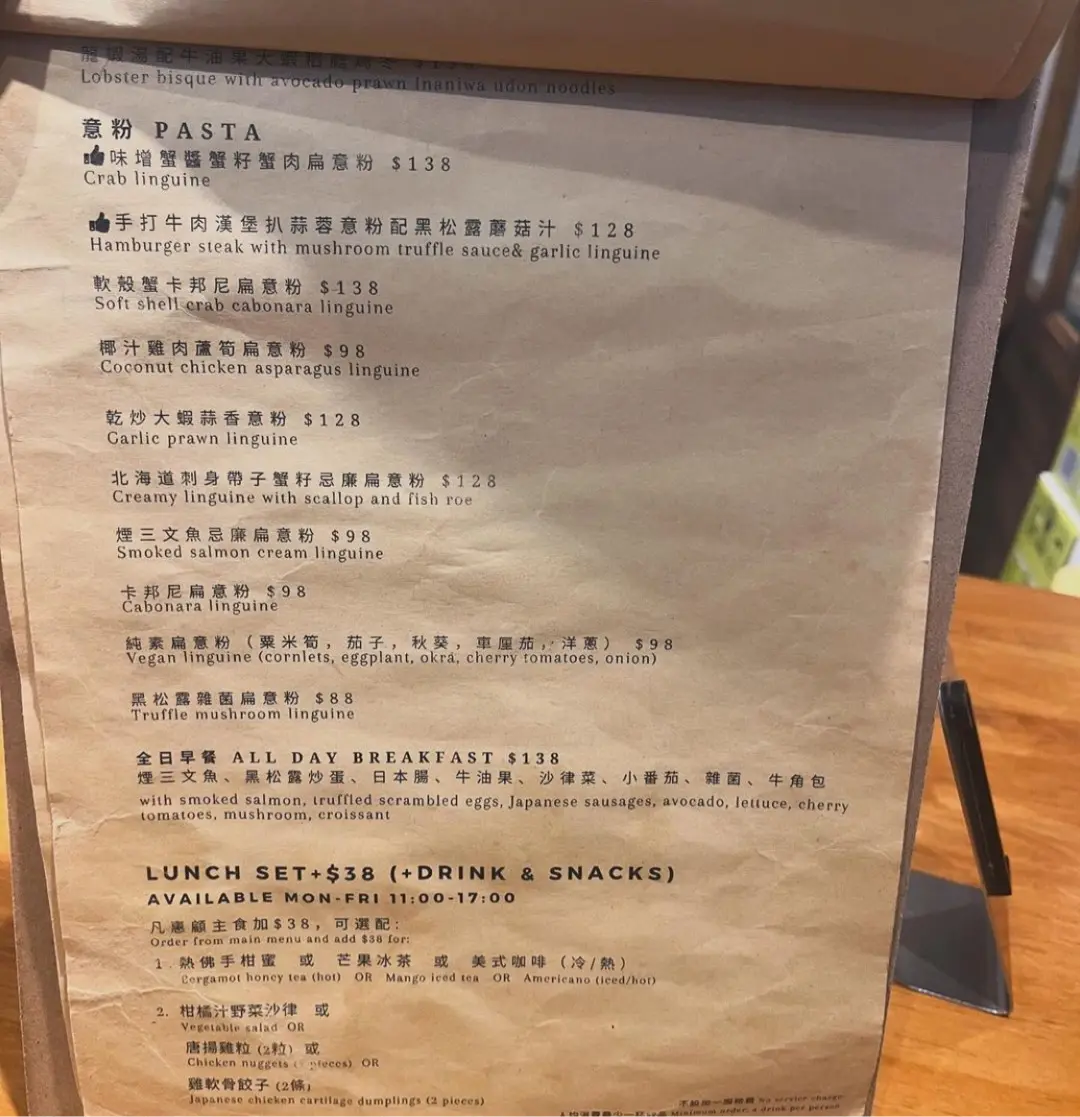 龍蝦湯配牛油果大蝦稻庭烏冬
Lobster bisque with avocado prawn Inaniwa udon noodles
意粉 PASTA
味增蟹醬蟹籽蟹肉扁意粉 $138
Crab linguine
手打牛肉漢堡扒蒜蓉意粉配黑松露蘑菇汁 $128
Hamburger steak with mushroom truffle sauce& garlic linguine
軟殼蟹卡邦尼扁意粉 $138
Soft shell crab cabonara linguine
椰汁雞肉蘆筍扁意粉 $98
Coconut chicken asparagus linguine
乾炒大蝦蒜香意粉 $128
Garlic prawn linguine
北海道刺身帶子蟹籽忌廉扁意粉 $128
Creamy linguine with scallop and fish roe
煙三文魚忌廉扁意粉 $98
Smoked salmon cream linguine
卡邦尼扁意粉 $98
Cabonara linguine
純素扁意粉（粟米筍，茄子，秋葵，車厘茄，洋蔥） $98
Vegan linguine (cornlets, eggplant, okra, cherry tomatoes, onion)
黑松露雜菌扁意粉 $88
Truffle mushroom linguine
全日早餐 ALL DAY BREAKFAST $138
煙三文魚、黑松露炒蛋、日本腸、牛油果、沙律菜、小番茄、雜菌、牛角包
with smoked salmon, truffled scrambled eggs, Japanese sausages, avocado, lettuce, cherry
tomatoes, mushroom, croissant
LUNCH SET+$38 (+DRINK & SNACKS)
AVAILABLE MON-FRI 11:00-17:00
凡惠顧主食加$38，可選配：
Order from main menu and add $38 for:
1. 熱佛手柑蜜 或 芒果冰茶 或 美式咖啡（冷/熱）
Bergamot honey tea (hot) OR Mango iced tea OR Americano (iced/hot)
2. 柑橘汁野菜沙律 或
Vegetable salad OR
唐揚雞粒 (2粒) 或
Chicken nuggets ( pieces) OR
雞軟骨餃子 (2條)
Japanese chicken cartilage dumplings (2 pieces)
不設加一服務費 No service charge
Minimum order: a drink per person